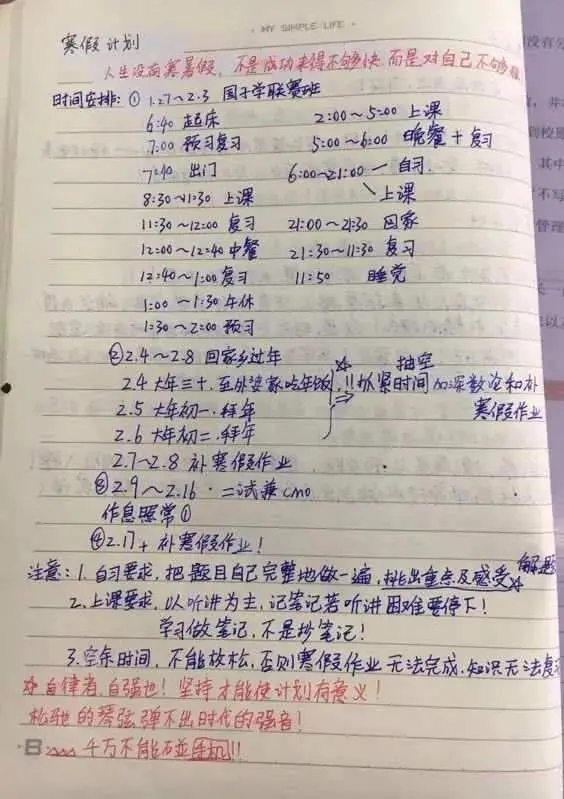 MY SIMPLE LIFE
寒假计划
人生没有寒暑假，不是成功来得不够快，而是对自己不够狠
时间安排：① 1.27～2.3 国子学联赛班
6:40 起床 2:00～5:00 上课
7:00 预习复习 5:00～6:00 晚餐＋复习
7:40 出门 6:00～21:00 一自习
8:30～11:30 上课 上课
11:30～12:00 复习 21:00～21:30 回家
12:00～12:40 中餐 21:30～11:30 复习
12:40～1:00 复习 11:50 睡觉
1:00～1:30 午休
1:30～2:00 预习
②2.4～2.8 回家乡过年 抽空
2.4 大年三十．至外婆家吃年饭 !!抓紧时间 加深数论和补
2.5 大年初一．拜年 寒假作业
2.6 大年初二．拜年
2.7～2.8 补寒假作业
③2.9～2.16．二试兼cmo
作息照常①
④2.17+ 补寒假作业！
注意：1.自习要求，把题目自己完整地做一遍，挑出重点及感受 解题
2.上课要求，以听讲为主，记笔记若听讲困难要停下！
学习做笔记，不是抄笔记！
3.空余时间，不能放松，否则寒假作业无法完成，知识无法复习
自律者，自强也！坚持才能使计划有意义！
松驰的琴弦弹不出时代的强音！
千万不能碰手机!!
没有分
并
到校
其中
不写
管理